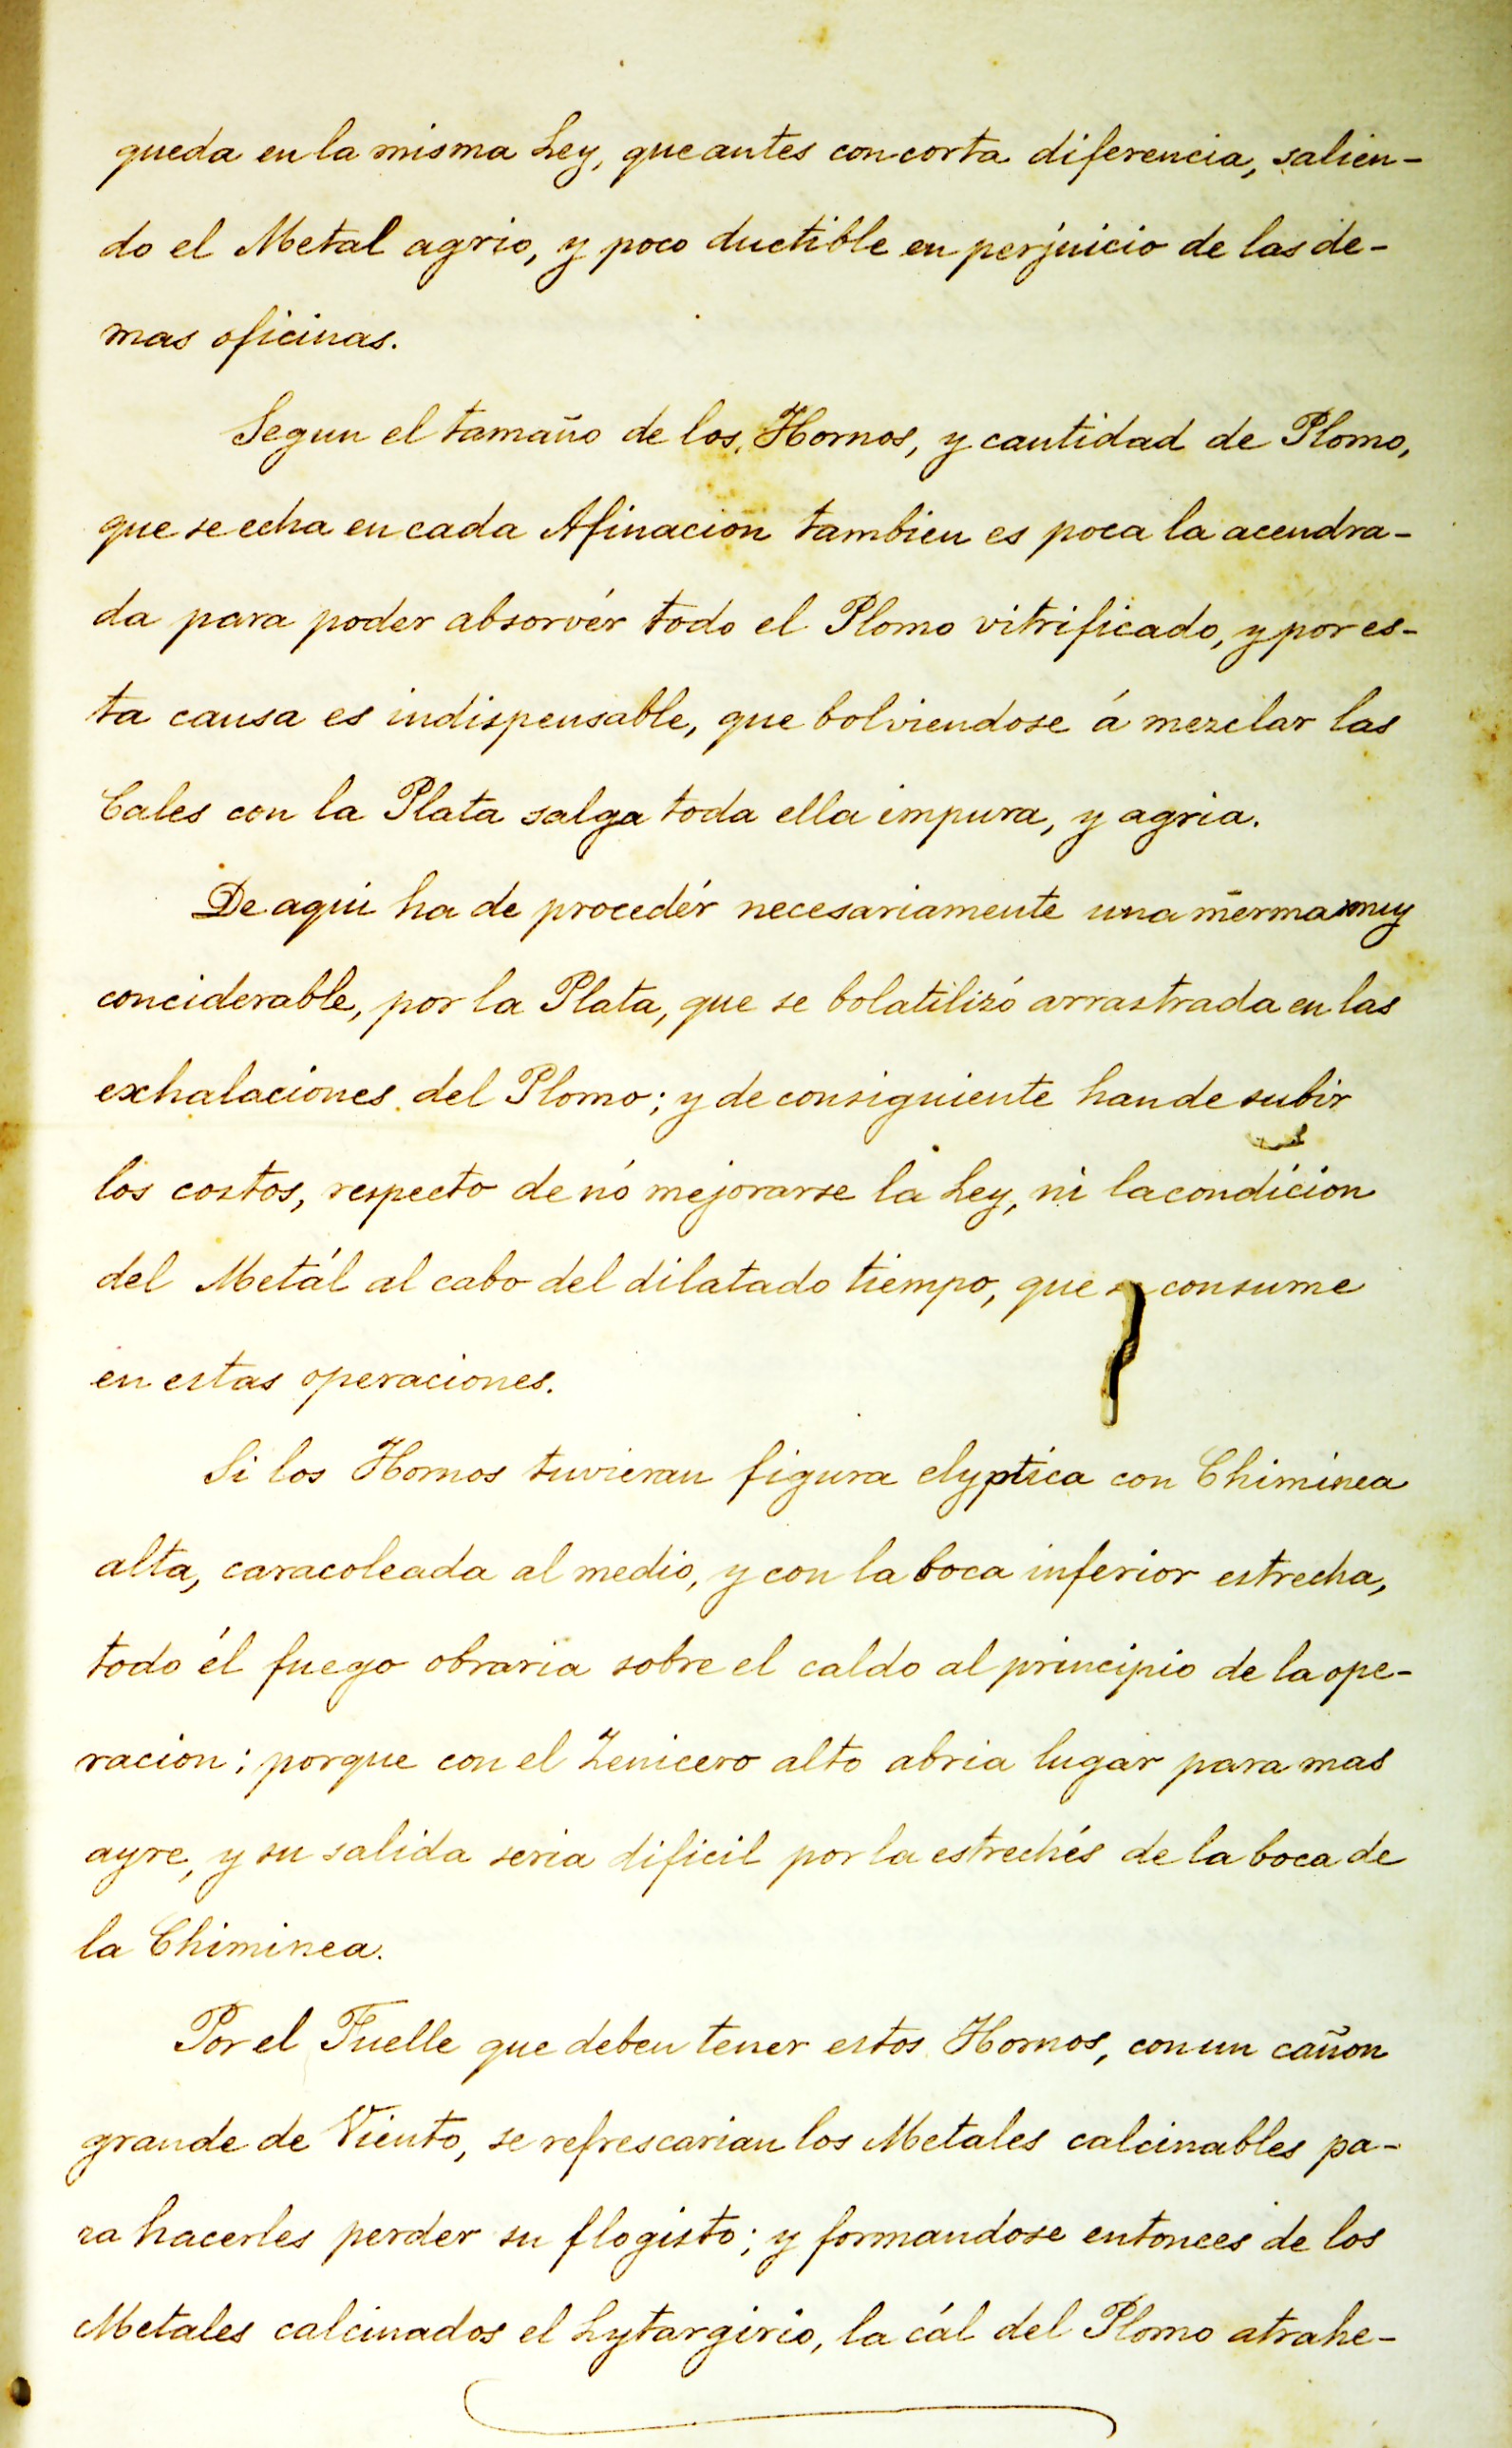 queda en la misma Ley, que antes con corta diferencia, salien-
do el Metal agrio, y poco ductible en perjuicio de las de-
mas oficinas.
Segun el tamaño de los Hornos, y cantidad de Plomo,
que se echa en cada Afinacion tambien es poca la acendra-
da para poder absorvér todo el Plomo vitrificado, y por es-
ta causa es indispensable, que bolviendose á mezclar las
Cales con la Plata salga toda ella impura, y agria.
De aqui ha de procedér necesariamente una merma muy
conciderable, por la Plata, que se bolatilizó arrastrada en las
exhalaciones del Plomo; y de consiguiente han de subir
los costos, respecto de nó mejorarse la Ley, ni la condicion
del Metál al cabo del dilatado tiempo, que se consume
en estas operaciones.
Si los Hornos tuvieran figura elyptica con Chiminea
alta, caracoleada al medio, y con la boca inferior estrecha,
todo él fuego obraria sobre el caldo al principio de la ope-
racion; porque con el Zenicero alto abria lugar para mas
ayre, y su salida seria dificil por la estrechés de la boca de
la Chiminea.
Por el Fuelle que deben tener estos Hornos, con un cañon
grande de Viento, se refrescarian los Metales calcinables pa-
ra hacerles perder su flogisto; y formandose entonces de los
Metales calcinados el Lytargirio, la cál del Plomo atrahe-